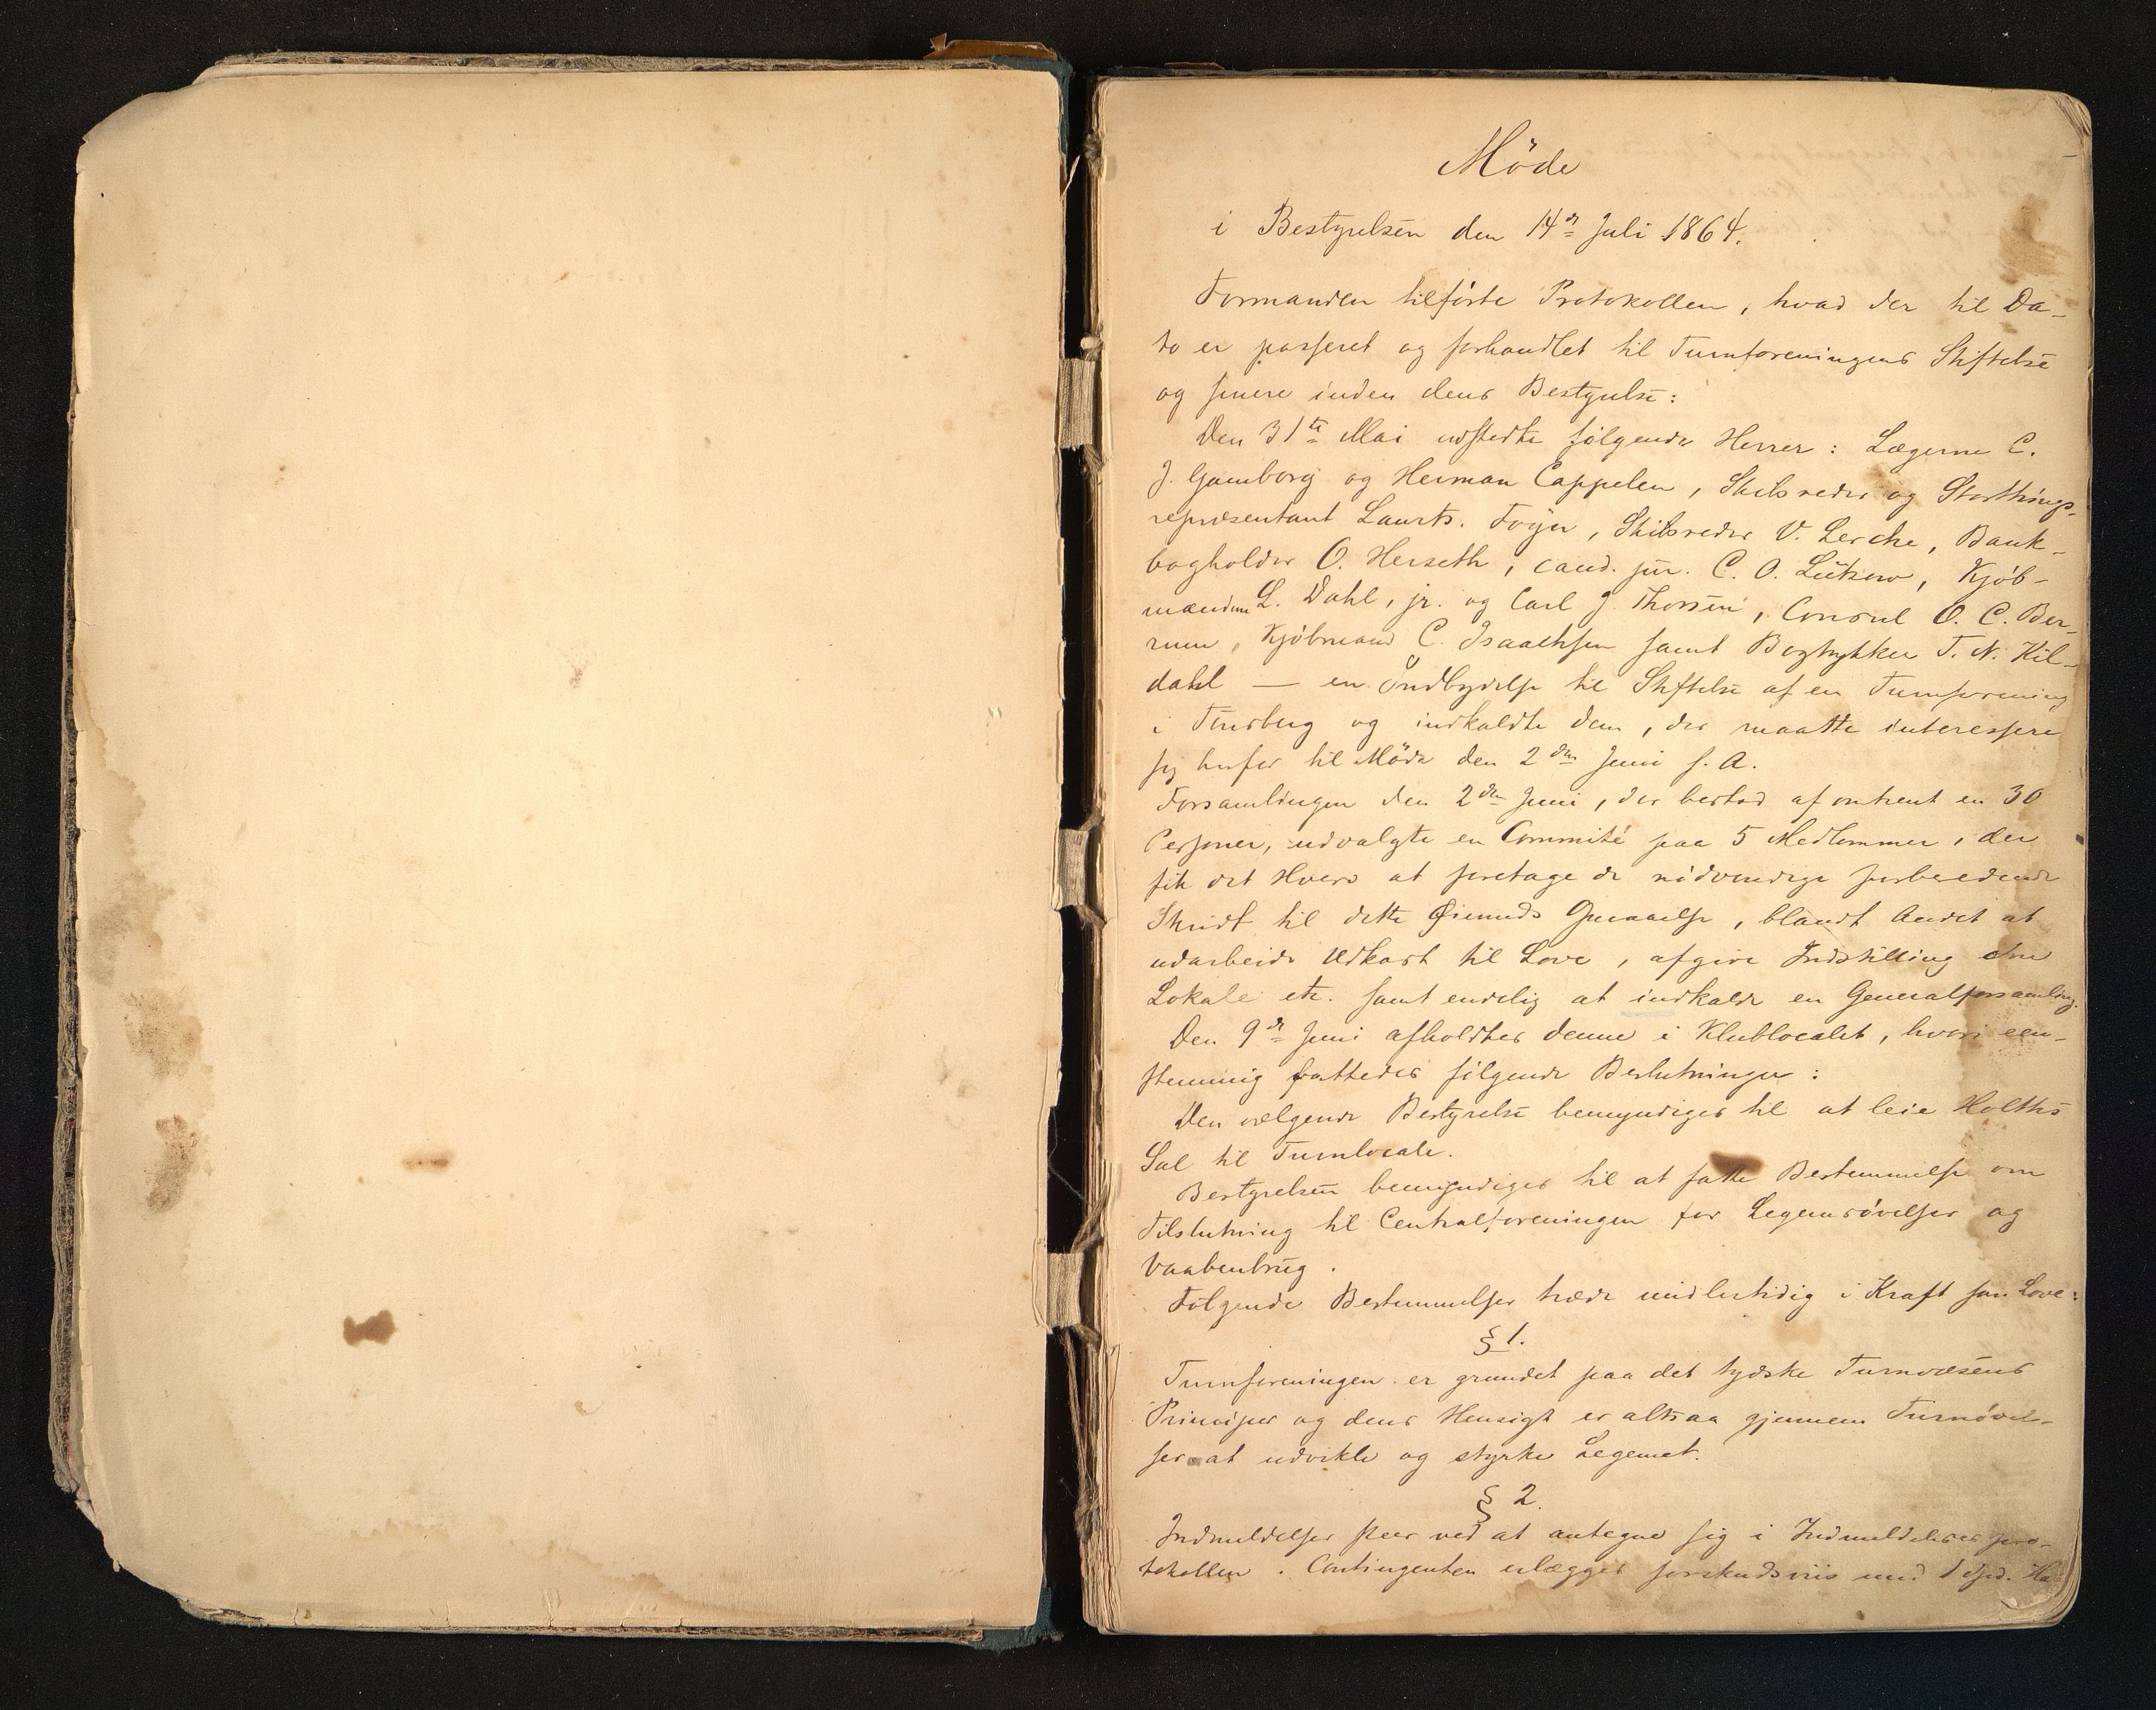 Möde
i Bestyrelsen den 14de Juli 1864.
Formanden tilförte Protokollen, hvad der til Da-
to er passeret og forhandlet til Turnforeningens Stiftelse
og senere inden dens Bestyrelse:
Den 31te Mai udstedte følgende Herrer: Lægerne C.
J. Gamborg og Herman Cappelen, Skibsreder og Storthings-
repræsentant Laurts. Føyn, Skibsreder V. Lerche, Bank-
bogholder O. Herseth, cand. jur. C. O. Lützow, Kjøb-
mændene L. Dahl, jr. og Carl J. Thorsen, Consul O. C. Ber-
rum, Kjøbmand C. Isaachsen samt Bogtrykker T. N. Kil-
dahl — en Indbydelse til Stiftelse af en Turnforening
i Tønsberg og indkaldte dem, der maatte interessere
sig herfor til Möde den 2den Juni s. A.
Forsamlingen den 2den Juni, der bestod af omtrent en 30
Personer, udvalgte en Committé paa 5 Medlemmer, der
fik det Hverv at foretage de nødvendige forberedende
Skridt til dette Øiemeds Opnaaelse, blandt Andet at
udarbeide Udkast til Love, afgive Indstilling om
Lokale etc. samt endelig at indkalde en Generalforsamling.
Den 9de Juni afholdtes denne i Klublocalet, hvori een-
stemmig fattedes følgende Beslutninger:
Den vælgende Bestyrelse bemyndiges til at leie Holths
Sal til Turnlocale.
Bestyrelsen bemyndiges til at fatte Bestemmelse om
Tilslutning til Centralforeningen for Legemsøvelser og
Vaabenbrug.
Følgende Bestemmelser træde midlertidig i Kraft som Love:
§ 1.
Turnforeningen er grundet paa det tydske Turnvæsens
Principer og dens Hensigt er altsaa gjennem Turnøvel-
ser at udvikle og styrke Legemet.
§ 2.
Indmeldelser skeer ved at antegne sig i Indmeldelsespro-
tokollen. Contingenten erlægges forskudsviis med 1 Spd.